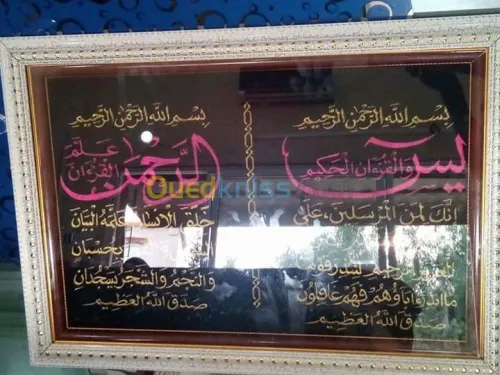 بسم الله الرحمن الرحيم
يس والقرءان الحكيم
انك لمن المرسلين على
ما انذر ءاباؤهم فهم غافلون
صدق الله العظيم
بسم الله الرحمن الرحيم
الرحمن علم القرءان
خلق الانسان علمه البيان
بحسبان
والنجم والشجر يسجدان
صدق الله العظيم
Ouedkniss